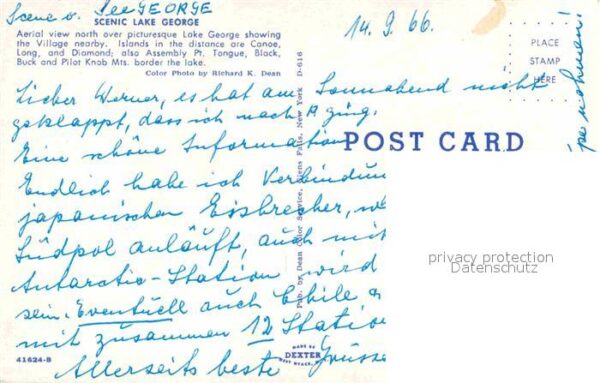 Scene v. See GEORGE
SCENIC LAKE GEORGE
Aerial view north over picturesque Lake George showing
the Village nearby. Islands in the distance are Canoe,
Long, and Diamond; also Assembly Pt. Tongue, Black,
Buck and Pilot Knob Mts. border the lake.
Color Photo by Richard K. Dean
14.9.66.
PLACE
STAMP
HERE
Lieber Werner, es hat am Sonnabend nicht
geklappt, dass ich nach A ging.
Eine schöne Information
Endlich habe ich Verbindun
japanischen Eisbrecher, w
Südpol anläuft, auch mit
Antarctic-Station wird
sein. Eventuell auch Chile
mit zusammen 12 Statio
Allerseits beste Grüsse
D-616
Pub. by Dean Color Service, Glens Falls, New York
POST CARD
privacy protection
Datenschutz
41624-B
MADE BY
DEXTER
WEST NYACK, N.Y.